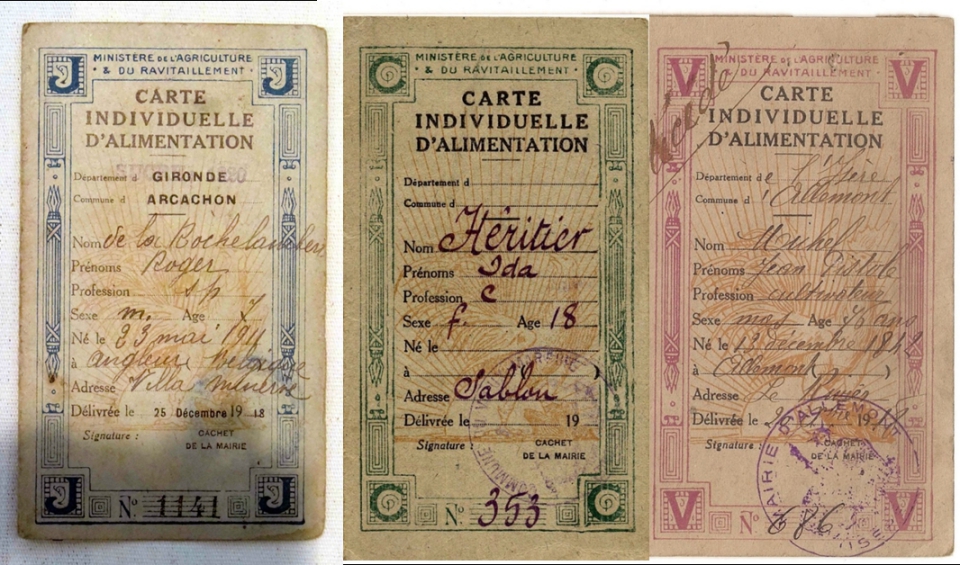 J J
MINISTÈRE DE L'AGRICULTURE
& DU RAVITAILLEMENT
CARTE
INDIVIDUELLE
D'ALIMENTATION
Département d GIRONDE
Commune d ARCACHON
Nom de la Rochelambert
Prénoms Roger
Profession sp
Sexe m. Age 7
Né le 23 mai 1911
à angleur belgique
Adresse Villa minerve
Délivrée le 25 Décembre 1918
Signature :
CACHET
DE LA MAIRIE
J J
N° 1141
C C
MINISTÈRE DE L'AGRICULTURE
& DU RAVITAILLEMENT
CARTE
INDIVIDUELLE
D'ALIMENTATION
Département d
Commune d
Nom Héritier
Prénoms Ida
Profession C
Sexe f. Age 18
Né le
à
Adresse Sablon
Délivrée le 19
Signature :
CACHET
DE LA MAIRIE
C C
N° 353
V V
MINISTÈRE DE L'AGRICULTURE
& DU RAVITAILLEMENT
décédé
CARTE
INDIVIDUELLE
D'ALIMENTATION
Département de l'Isère
Commune d'Allemont
Nom Michel
Prénoms Jean
Profession cultivateur
Sexe mas Age 76 ans
Né le 13 décembre 1842
à Allemont ( )
Adresse Le
Délivrée le 19
Signature :
CACHET
DE LA MAIRIE
MAIRIE D'ALLEMONT
V V
N° 686